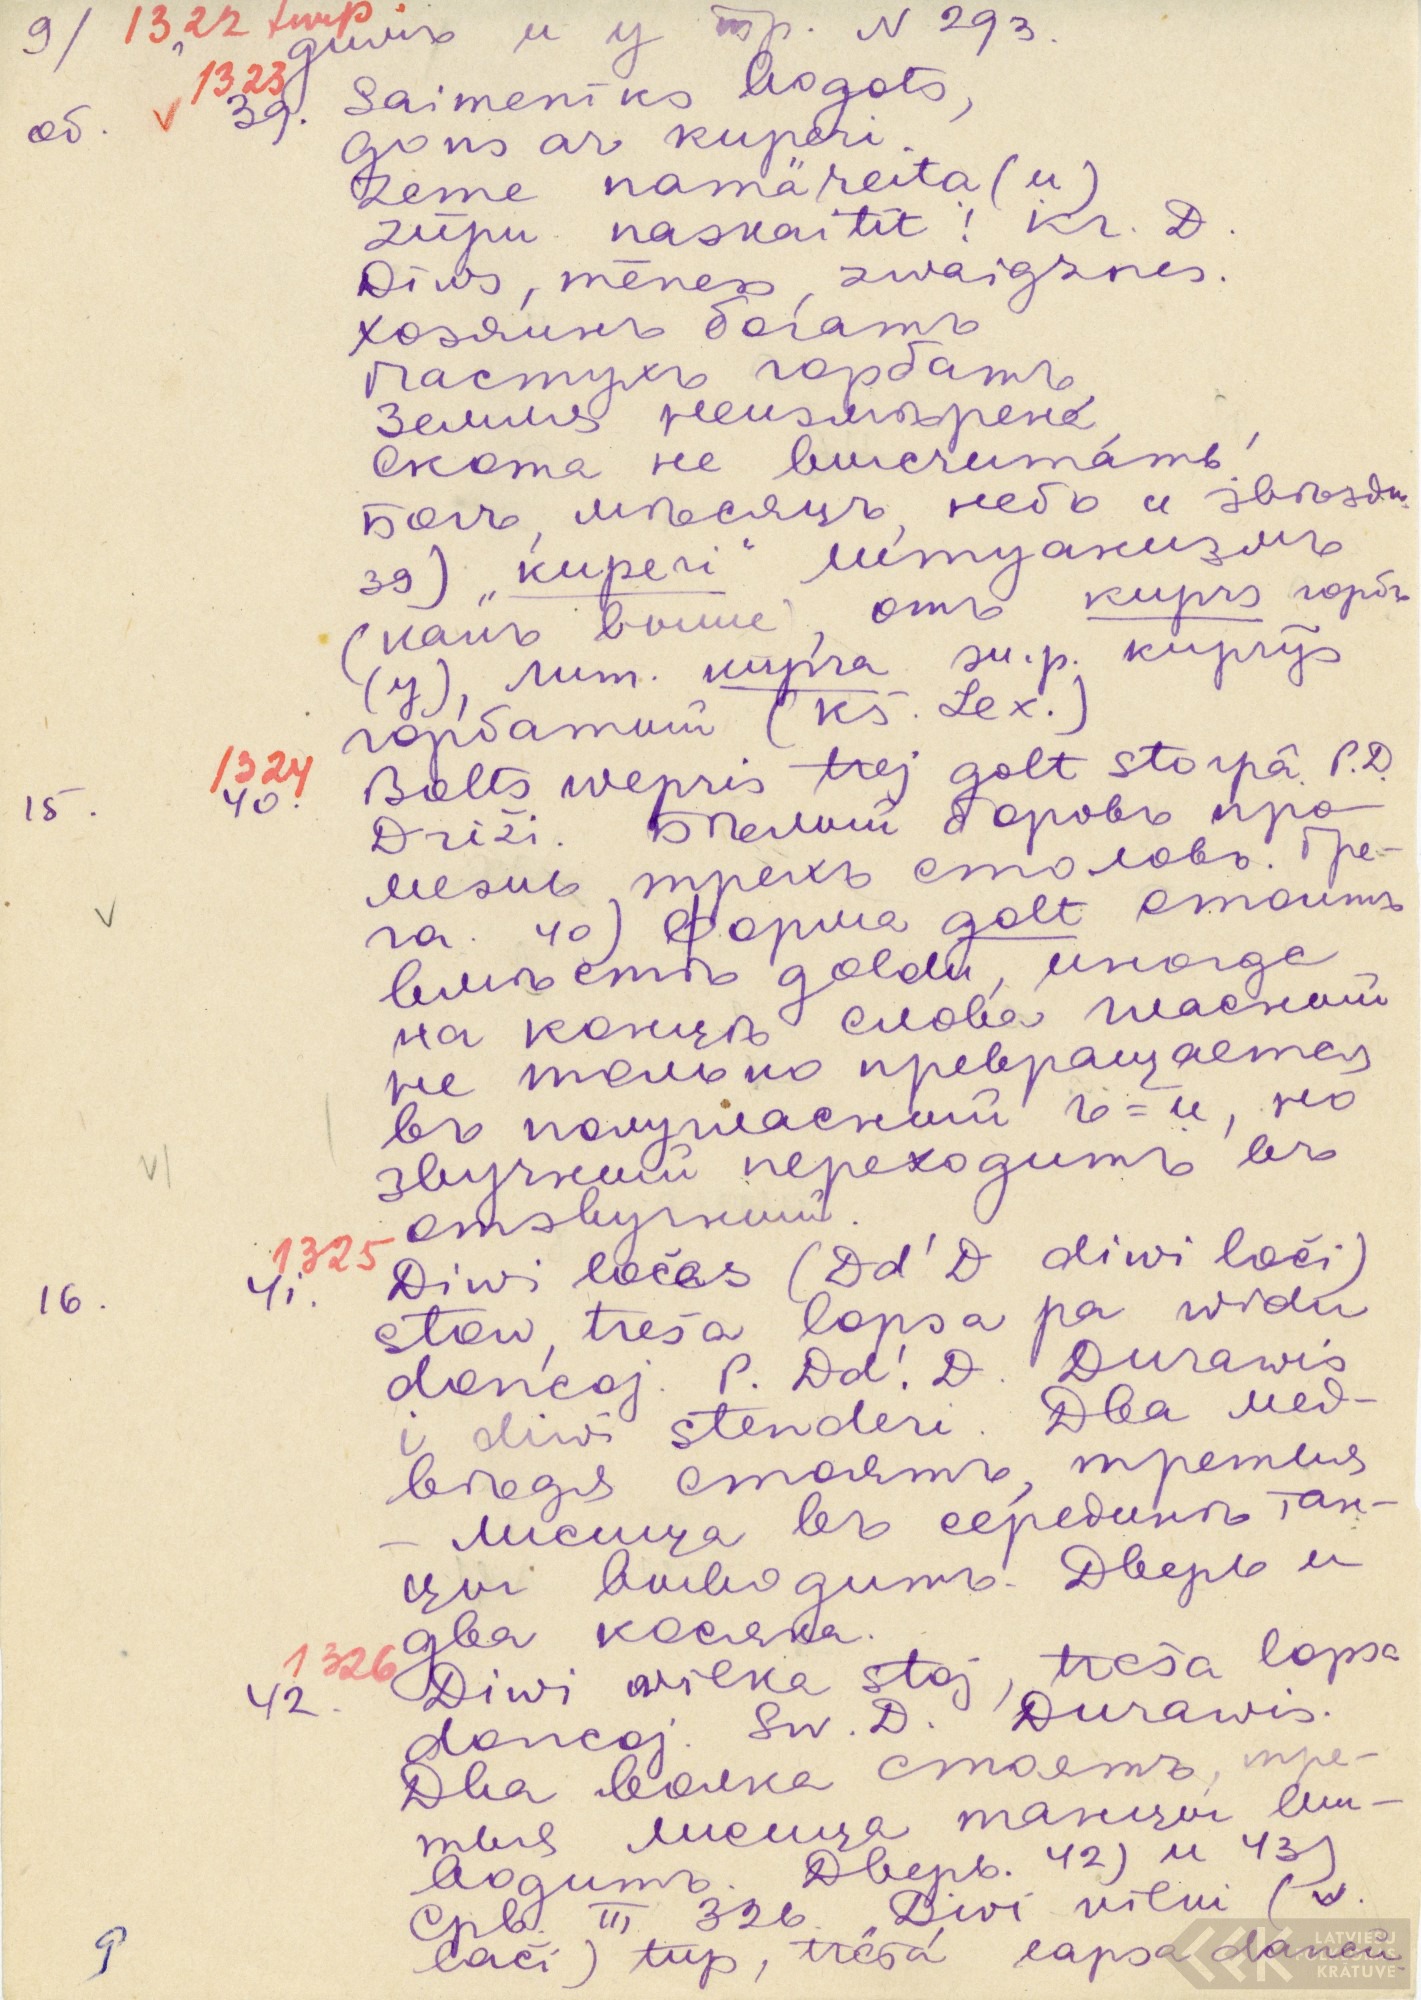 9/ 1322 turp
динъ и у Тр. N 293.
1323
об. v 39. Saimenīks bogots,
gons ar kuperi.
Zeme namäreita (u)
zūpu naskaitīt! Kr. D.
Dīws, mēness, zwaigznes.
Хозяинъ богатъ
Пастухъ горбатъ,
Земля неизмѣрена,
Скота не высчитать!
Богъ, мѣсяцъ, небо и звѣзды.
39) „kuperi“ литуанизмъ
(какъ выше), отъ kuprs горбъ
(у), лит. kuprа ж.р. kuprȳs
горбатый (Kš. Lex.)
1324
15. 40. Bolts wepris trej golt storpâ. P.D.
Driži. Бѣлый боровъ про-
межъ трехъ столовъ. Гре-
ча. 40) Форма golt стоитъ
v вмѣстѣ goldu, иногда
на концѣ слова гласный
не только превращается
въ полугласный ъ=ŭ, но
v| звучный переходитъ въ
отзвучный.
1325
16. 41. Diwiločas (Dd' D diwi loči)
stow, treša lopsa pa widu
dońcoj. P. Dd'. D. Durawis
i diwi stenderi. Два мед-
вѣдя стоятъ, третья
– лисица въ серединѣ тан-
цы выводитъ. Дверь и
два косяка.
1326
42. Diwi wilka stoj, treša lopsa
doncoj. Sw. D. Durawis.
Два волка стоятъ, тре-
тья лисица танцы вы-
водитъ. Дверь. 42) и 43)
Срв. III 326. Divi vilki (v.
9 lači) tup, trešā lapsa dancū
LATVIEŠU
FOLKLORAS
KRĀTUVE